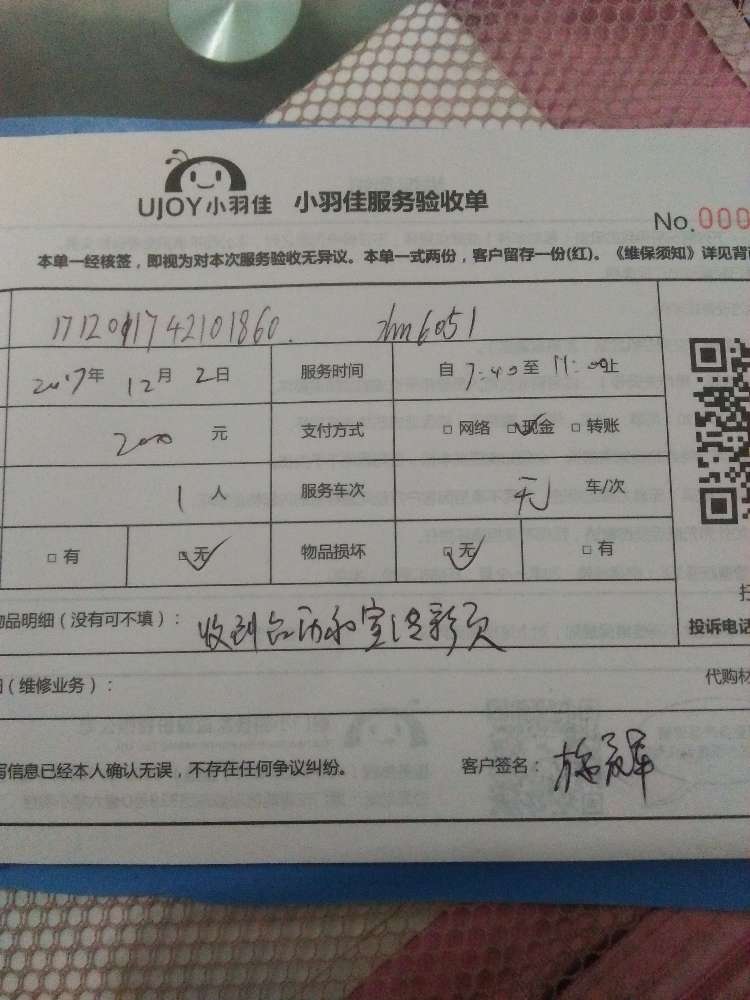 UJOY小羽佳 小羽佳服务验收单
No.000
本单一经核签，即视为对本次服务验收无异议。本单一式两份，客户留存一份(红)。《维保须知》详见背
171201742101860. zhm6051
2017年 12月 2日 服务时间 自 7:40 至 11:00止
2000 元 支付方式 □ 网络 □ 现金 □ 转账
1 人 服务车次 无 车/次
□ 有 □ 无 物品损坏 □ 无 □ 有
品明细（没有可不填）： 收到
投诉电话
（维修业务）： 代购材
信息已经本人确认无误，不存在任何争议纠纷。 客户签名： 施